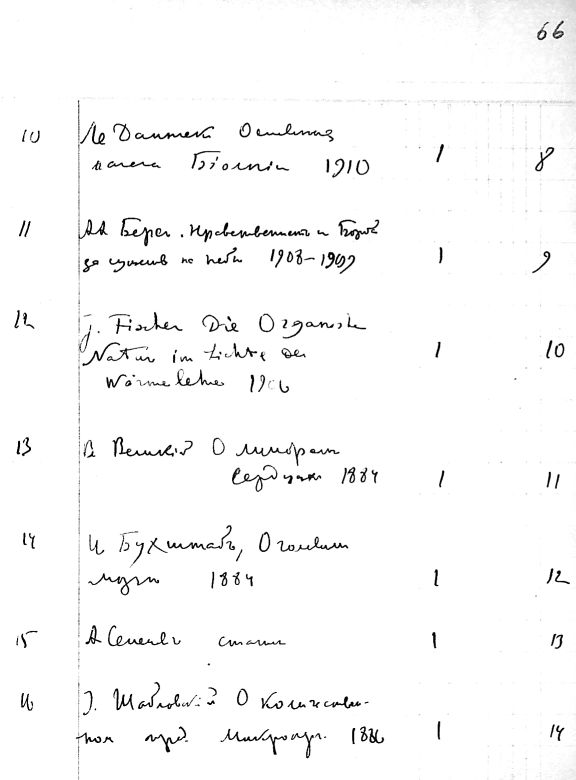 66
10 Ле Дантек Основныя
начала Біологіи 1910 1 8
11 АА Берс. Нравственность и Борьба
до на небѣ 1908–1909 1 9
12 J. Fischer Die Organische
Natur im Lichte der
Wärmelehre 1 10
13 В Великій О
сердца 1884 1 11
14 И Бухштабъ, О
мозги 1884 1 12
15 А Сеченовъ статьи 1 13
16 J. Шабловскій О количествен-
ном Микроорг. 1886 1 14